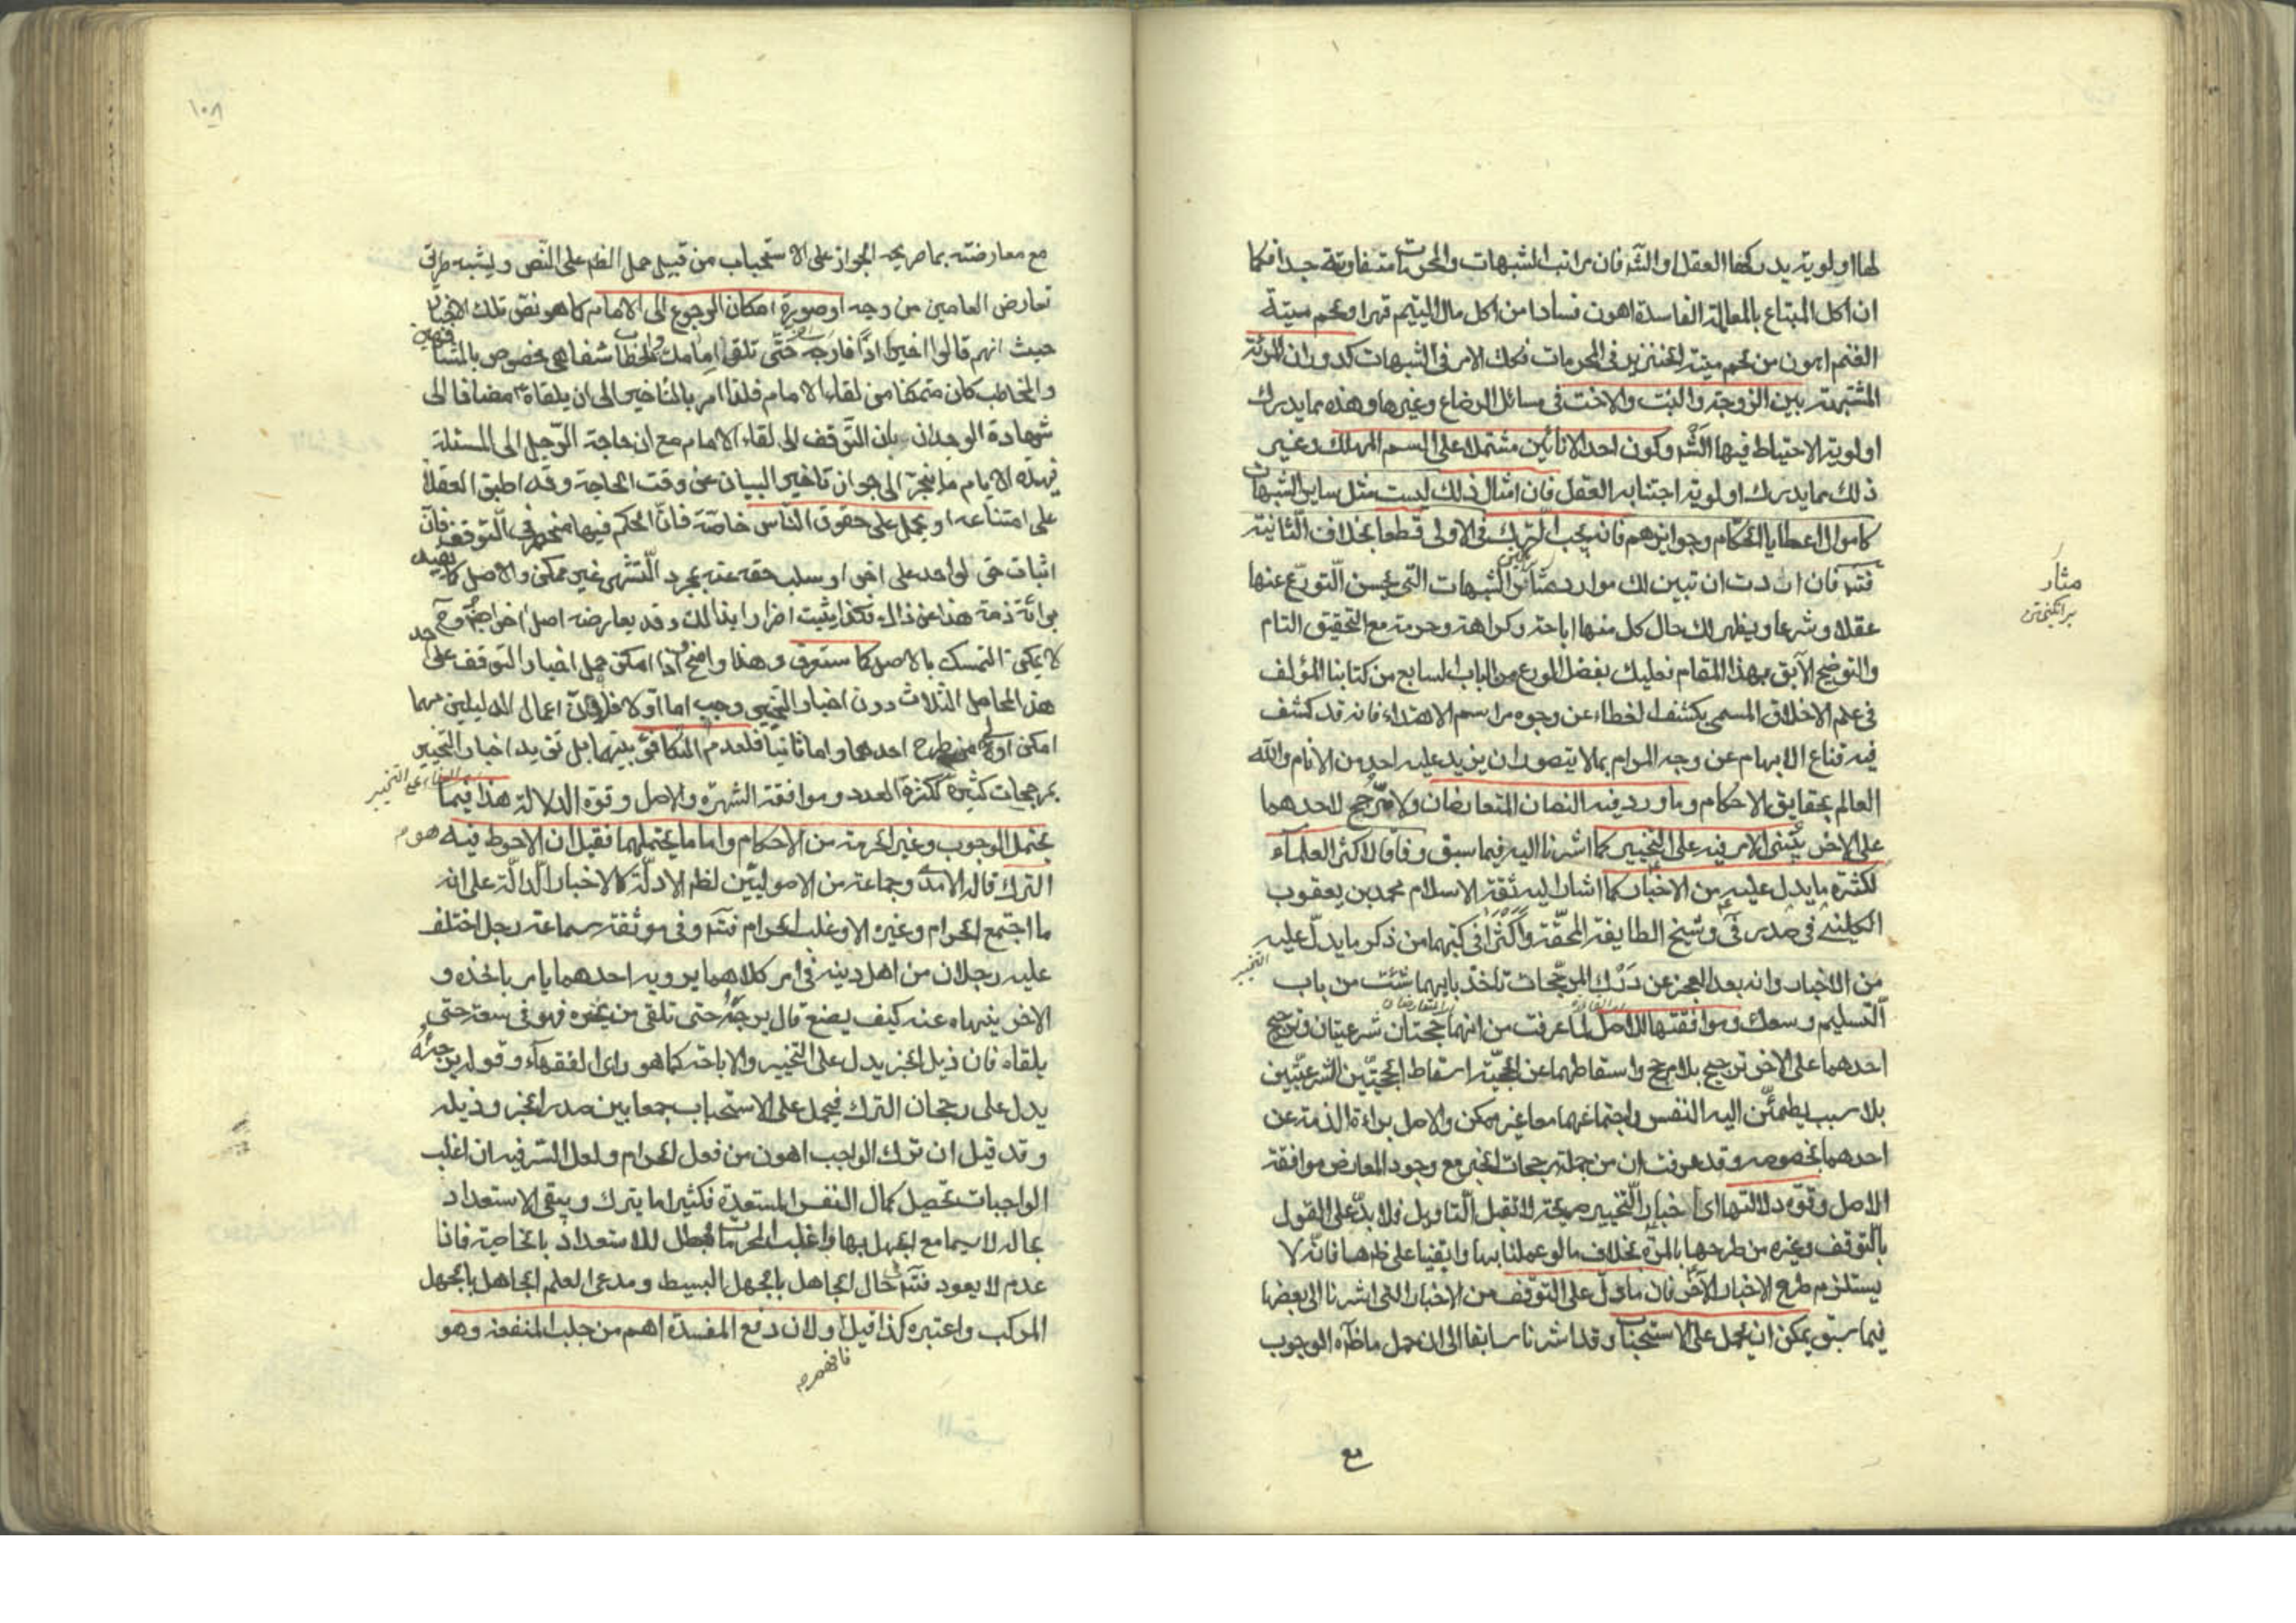 لها اولوية يدركها العقل او الشرع فان مراتب الشبهات والمحرمات متفاوتة جدا فكما
ان اكل المبتاع بالمعاملة الفاسدة اهون فسادا من اكل مال اليتيم قهرا ولحم ميتة
الغنم اهون من لحم ميتة الخنزير في المحرمات فكك الامر في الشبهات كدوران المرئة
المشتبهة بين الزوجة والبنت والاخت في مسائل الرضاع وغيرها وهذه مما يدرك
اولوية الاحتياط فيها الشرع وكون احد الانائين مشتملا على السم المهلك وغير
ذلك مما يدرك اولوية اجتنابه العقل فان امثال ذلك ليست مثل ساير الشبهات
كاموال اعطايا الحكام وجوايزهم فانه يجب الترك في الاولى قطعا بخلاف الثانية
فتدبر فان اردت ان تبين لك موارد الشبهات التي يحسن التورع عنها
عقلا وشرعا ويظهر لك حال كل منها اباحة وكراهة وحرمة مع التحقيق التام
والتوضيح الآيق بهذا المقام فعليك بفصل الورع من الباب السابع من كتابنا المؤلف
في علم الاخلاق المسمى بكشف الغطاء عن وجوه مراسم الاهتداء فانه قد كشف
فيه قناع الابهام عن وجه المرام بما لا يتصور ان يزيد عليه احد من الانام والله
العالم بحقايق الاحكام وما ورد فيه النصان المتعارضان ولا مرجح لاحدهما
على الاخر يبتنى الامر فيه على التخيير كما اشرنا اليه فيما سبق وفاقا لاكثر العلماء
لكثرة ما يدل عليه من الاخبار كما اشار اليه ثقة الاسلام محمد بن يعقوب
الكليني في صدر في وشيخ الطايفة المحقة واكثرا في كتبهما من ذكر ما يدل عليه
التخيير
من الاخبار وانه بعد العجز عن درك المرجحات تاخذ بايهما شئت من باب
التسليم وسعك وموافقتها للاصل لما عرفت من انهما حجتان شرعيتان وترجيح
احدهما على الاخر ترجيح بلا مرجح واسقاطهما عن الحجية اسقاط الحجتين الشرعيتين
بلا سبب يطمئن اليه النفس واجتماعهما معا غير ممكن والاصل براءة الذمة عن
احدهما بخصوصه وقد عرفت ان من جملة مرجحات الخبر مع وجود المعارض موافقة
الاصل وقوة دلالتها اي اخبار التخيير صريحة لا تقبل التاويل فلا بد على القول
بالتوقف وغيره من طرحها بالمرة بخلاف ما لو عملنا بها وابقيناها على ظاهرها فانه لا
يستلزم طرح الاخبار الاخر فان ما دل على التوقف من الاخبار التي اشرنا الى بعضها
فيما سبق يمكن ان يحمل على الاستحباب وقد اشرنا سابقا الى ان حمل ما ظاهره الوجوب
مع
مثار
برانكيختن
١٠٨
مع معارضته بما صريحه الجواز على الاستحباب من قبيل حمل الظاهر على النص ويشبه طريق
تعارض العامين من وجه او صورة امكان الرجوع الى الامام كما هو نص تلك الاخبار
حيث انهم قالوا اخيرا اذا فارجه حتى تلقى امامك والخطاب شفاهي مخصوص بالمشافهين
والمخاطب كان متمكنا من لقاء الامام فلذا امر بالتاخير الى ان يلقاه مضافا الى
شهادة الوجدان بان التوقف الى لقاء الامام مع ان حاجة الرجل الى المسئلة
في هذه الايام ما ينجر الى جواز تاخير البيان عن وقت الحاجة وقد اطبق العقلا
على امتناعه او يحمل على حقوق الناس خاصة فان الحكم فيها منحصر في التوقف فان
اثبات حق لواحد على اخر او سلب حقه عنه بمجرد التشهي غير ممكن والاصل كما يفيد
برائة ذمة هذا عن ذاك فكذا يثبت اضرارا بذلك وقد يعارضه اصل اخر
لا يمكن التمسك بالاصل كما ستعرف وهذا واضح واذا امكن حمل اخبار التوقف على احد
هذه المحامل الثلاث دون اخبار التخيير وجب اما اولا فلان اعمال الدليلين مهما
امكن اولى من طرح احدهما واما ثانيا فلعدم التكافؤ بينهما بل تؤيد اخبار التخيير
بمرجحات كثيرة ككثرة العدد وموافقة الشهرة والاصل وقوة الدلالة هذا فيما
يحتمل الوجوب وغير الحرمة من الاحكام واما ما يحتملهما فقيل ان الاحوط فيه هو
الترك قاله الامدي وجماعة من الاصوليين لظاهر الادلة كالاخبار الدالة على انه
ما اجتمع الحرام وغيره الا وغلب الحرام فتدبر وفي موثقة سماعة رجل اختلف
عليه رجلان من اهل دينه في امر كلاهما يرويه احدهما يامر باخذه و
الاخر ينهاه عنه كيف يصنع قال يرجئه حتى تلقى من يخبره فهو في سعة حتى
يلقاه فان ذيل الخبر يدل على التخيير والاباحة كما هو راى الفقهاء وقوله يرجئه
يدل على رجحان الترك فيحمل على الاستحباب جمعا بين صدر الخبر وذيله
وقد قيل ان ترك الواجب اهون من فعل الحرام ولعل السر فيه ان اغلب
الواجبات تحصيل كمال النفس المستعدة فكثيرا ما يترك ويبقى الاستعداد
بحاله لا سيما مع الجهل بها واغلب المحرمات مبطل للاستعداد بالخاصية فاذا
عدم لا يعود فتدبر حال الجاهل بالجهل البسيط ومدعى العلم الجاهل بالجهل
المركب واعتبره كذا قيل ولان دفع المفسدة اهم من جلب المنفعة وهو
فافهم منه